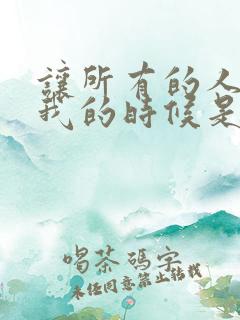 讓所有的人
我的時候是
喝茶碼字
未經同意禁止轉載